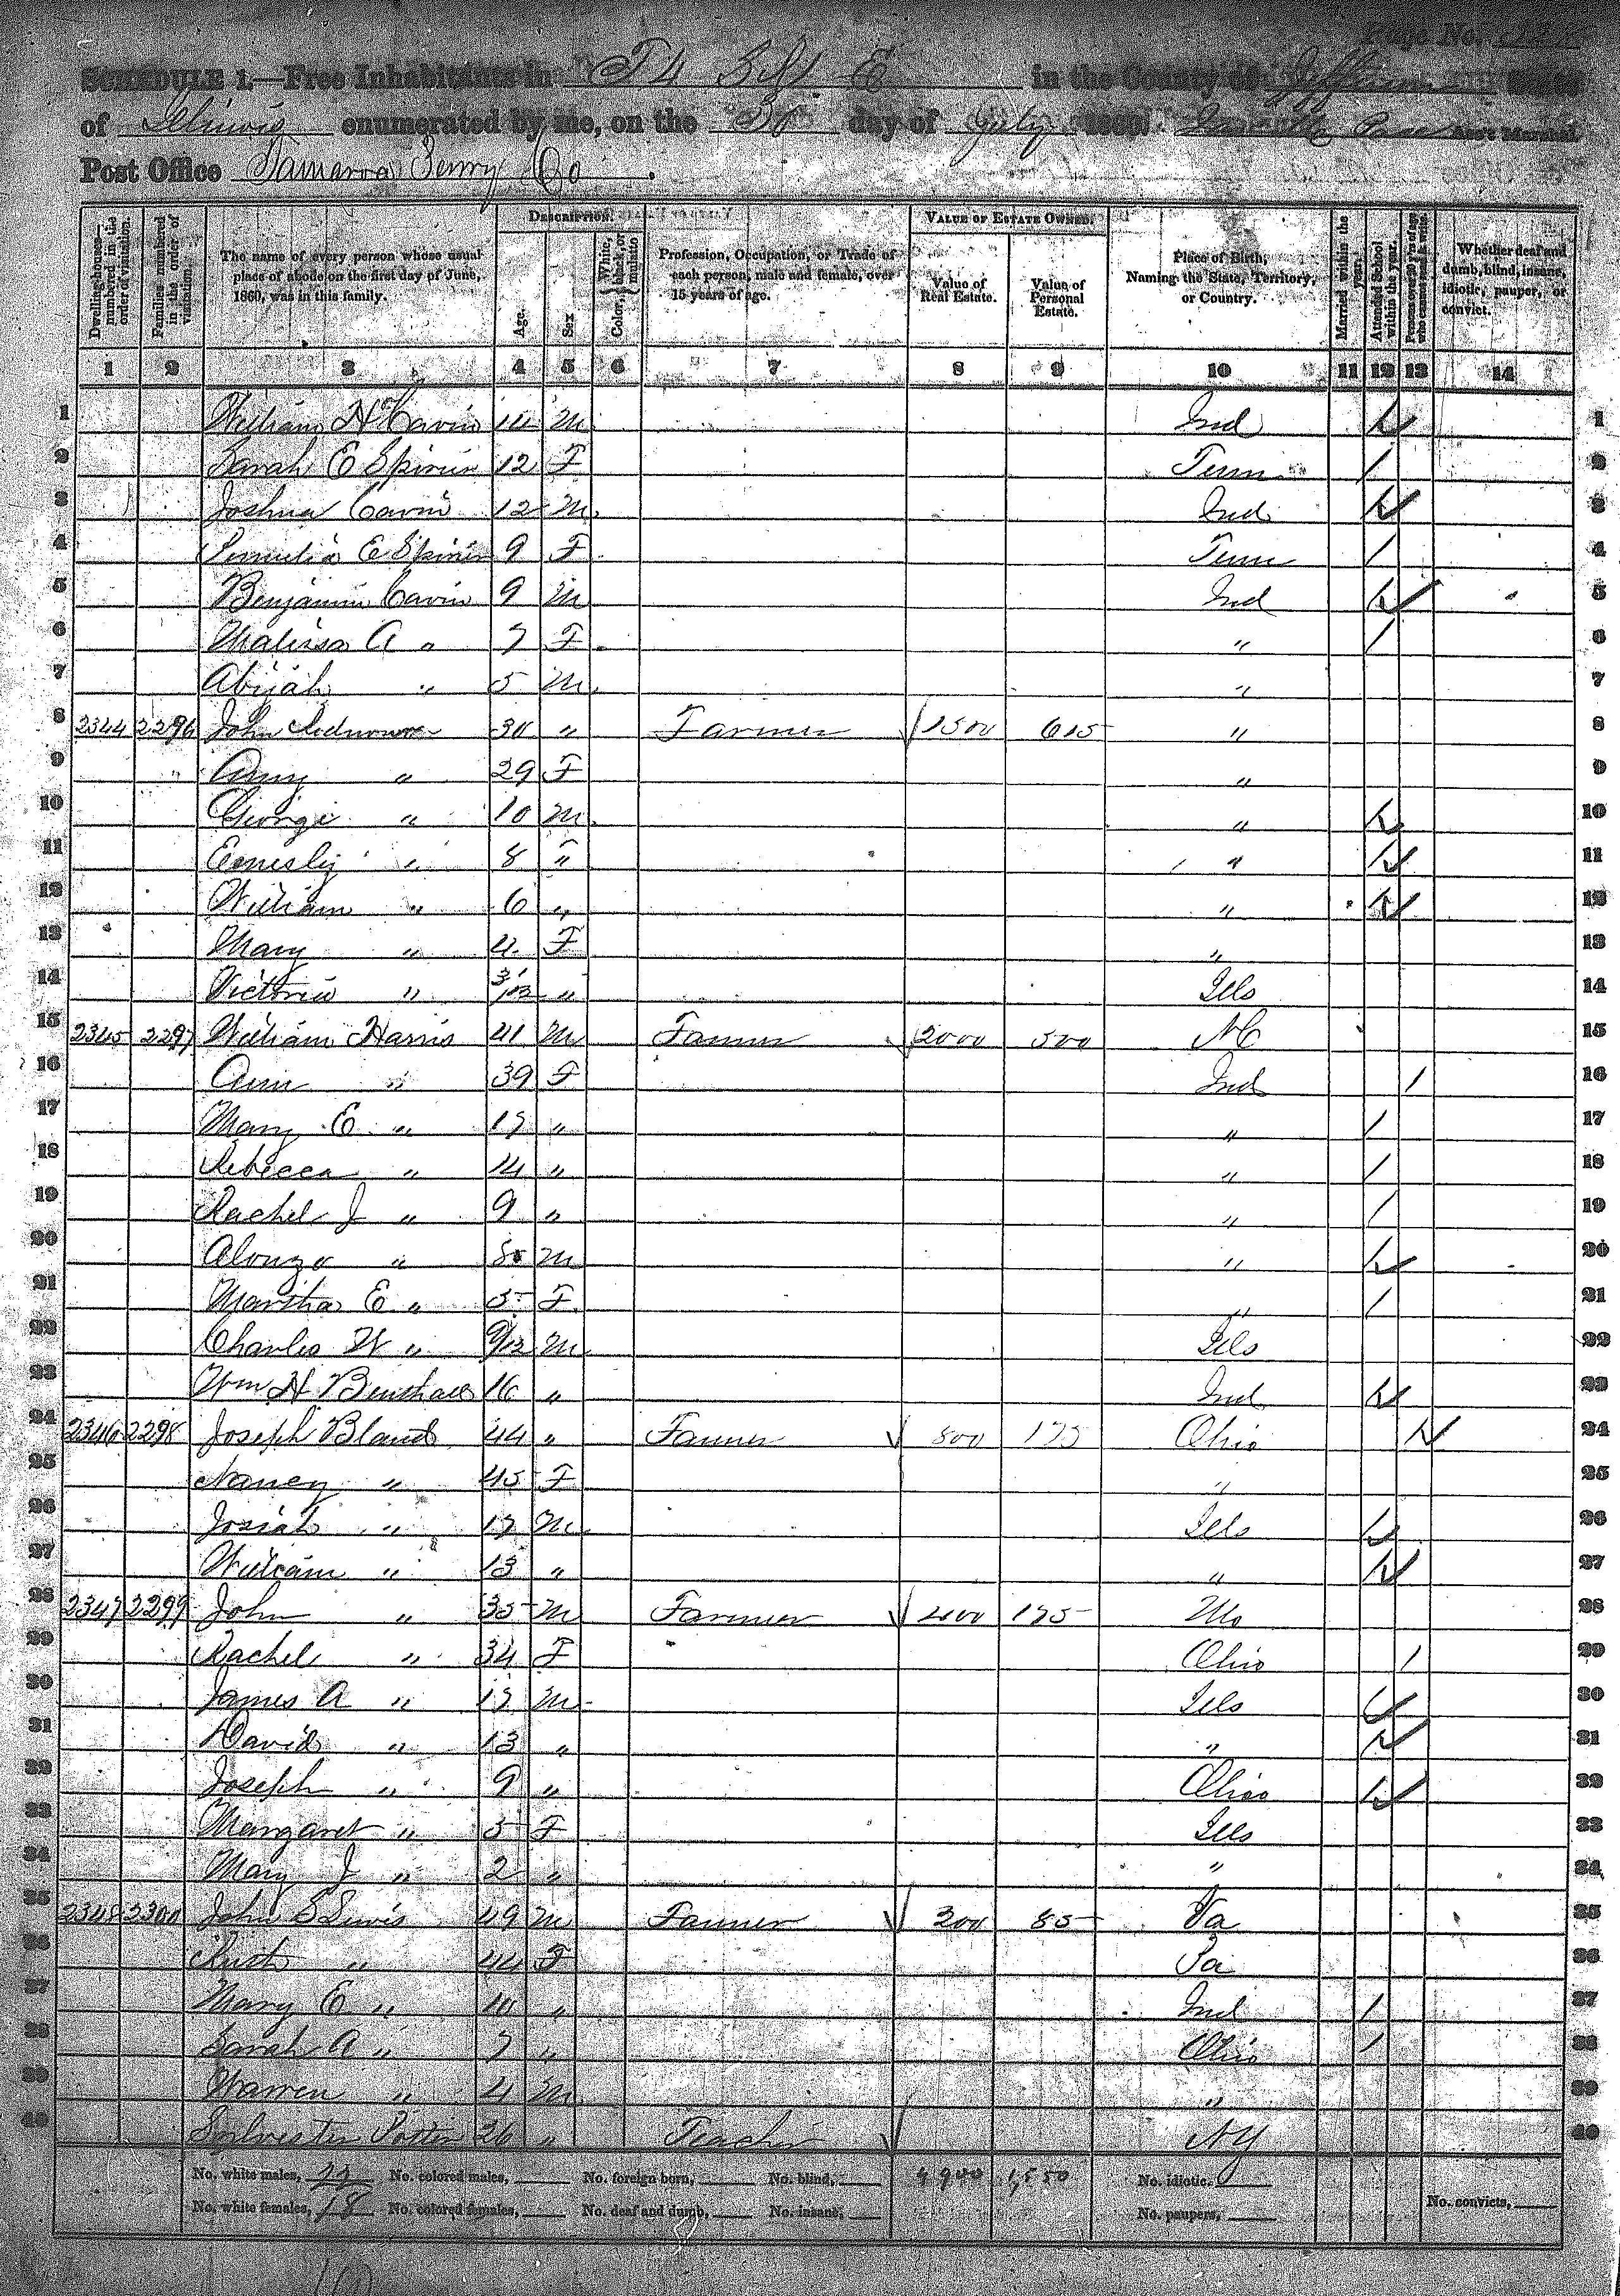 Page No.
SCHEDULE 1.—Free Inhabitants in T4 S R1 E in the County of Jefferson State
of Illinois enumerated by me, on the 30 day of July 1860. Ass't Marshal.
Post Office Tamaroa Perry Co.
DESCRIPTION. VALUE OF ESTATE OWNED.
Dwelling-houses—numbered in the order of visitation. Families numbered in the order of visitation. The name of every person whose usual place of abode on the first day of June, 1860, was in this family. Age. Sex Color, {White, black, or mulatto Profession, Occupation, or Trade of each person, male and female, over 15 years of age. Value of Real Estate. Value of Personal Estate. Place of Birth, Naming the State, Territory, or Country. Married within the year. Attended School within the year. Persons over 20 y'rs of age who cannot read & write. Whether deaf and dumb, blind, insane, idiotic, pauper, or convict.
1 2 3 4 5 6 7 8 9 10 11 12 13 14
1 William H Cavin 14 M Ind 1 1
2 Sarah E 12 F Tenn 1 2
3 Joshua Cavin 12 M Ind 1 3
4 E 9 F Tenn 1 4
5 Benjamin Cavin 9 M Ind 1 5
6 Malissa A " 7 F " 1 6
7 Abijah " 5 M " 7
8 2344 2296 John 30 " Farmer 1500 615 " 8
9 Amy " 29 F " 9
10 George " 10 M " 1 10
11 " 8 " " 1 11
12 William " 6 " " 1 12
13 Mary " 4 F " 13
14 Victoria " 3/12 " Ills 14
15 2345 2297 William Harris 41 M Farmer 2000 500 NC 15
16 Ann " 39 F Ind 1 16
17 Mary E " 17 " " 1 17
18 Rebecca " 14 " " 1 18
19 Rachel J " 9 " " 1 19
20 Alonzo " 8 M " 1 20
21 Martha E " 5 F " 1 21
22 Charles W " 9/12 M Ills 22
23 Wm H 16 " Ind 1 23
24 2346 2298 Joseph Bland 44 " Farmer 800 175 Ohio 1 24
25 Nancy " 45 F " 25
26 Josiah " 17 M Ills 1 26
27 William " 13 " " 1 27
28 2347 2299 John " 35 M Farmer 400 175 Mo 28
29 Rachel " 34 F Ohio 1 29
30 James A " 17 M Ills 1 30
31 David " 13 " " 1 31
32 Joseph " 9 " Ohio 1 32
33 Margaret " 5 F Ills 33
34 Mary J " 2 " " 34
35 2348 2300 John S Lewis 49 M Farmer 200 85 Va 35
36 Ruth " 44 F Pa 36
37 Mary E " 10 " Ind 1 37
38 Sarah A " 7 " Ohio 1 38
39 Warren " 4 M " 39
40 Sylvester 26 " Teacher NY 40
No. white males, 22 No. colored males, No. foreign born, No. blind, 4900 1,550 No. idiotic.
No. white females, 18 No. colored females, No. deaf and dumb, No. insane, No. paupers, No. convicts,